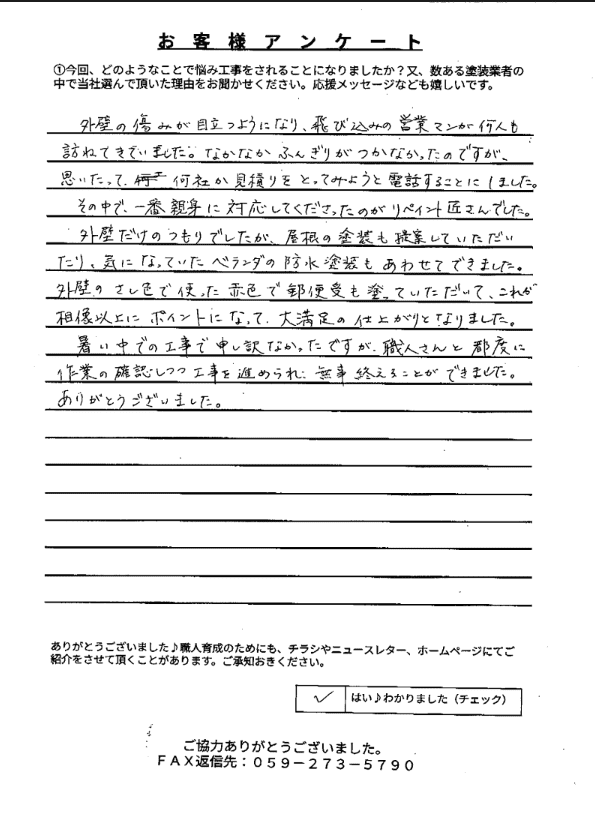 お客様アンケート
①今回、どのようなことで悩み工事をされることになりましたか？又、数ある塗装業者の
中で当社選んで頂いた理由をお聞かせください。応援メッセージなども嬉しいです。
外壁の傷みが目立つようになり、飛び込みの営業マンが何人も
訪ねてきていました。なかなかふんぎりがつかなかったのですが、
思いたって、何社か見積りをとってみようと電話することにしました。
その中で、一番親身に対応してくださったのがリペイント匠さんでした。
外壁だけのつもりでしたが、屋根の塗装も提案していただい
たり、気になっていたベランダの防水塗装もあわせてできました。
外壁のさし色で使った赤色で郵便受も塗っていただいて、これが
相像以上にポイントになって、大満足の仕上がりとなりました。
暑い中での工事で申し訳なかったですが、職人さんと都度に
作業の確認しつつ工事を進められ、無事終えることができました。
ありがとうございました。
ありがとうございました♪職人育成のためにも、チラシやニュースレター、ホームページにてご
紹介をさせて頂くことがあります。ご承知おきください。
✓ はい♪わかりました（チェック）
ご協力ありがとうございました。
ＦＡＸ返信先：０５９－２７３－５７９０